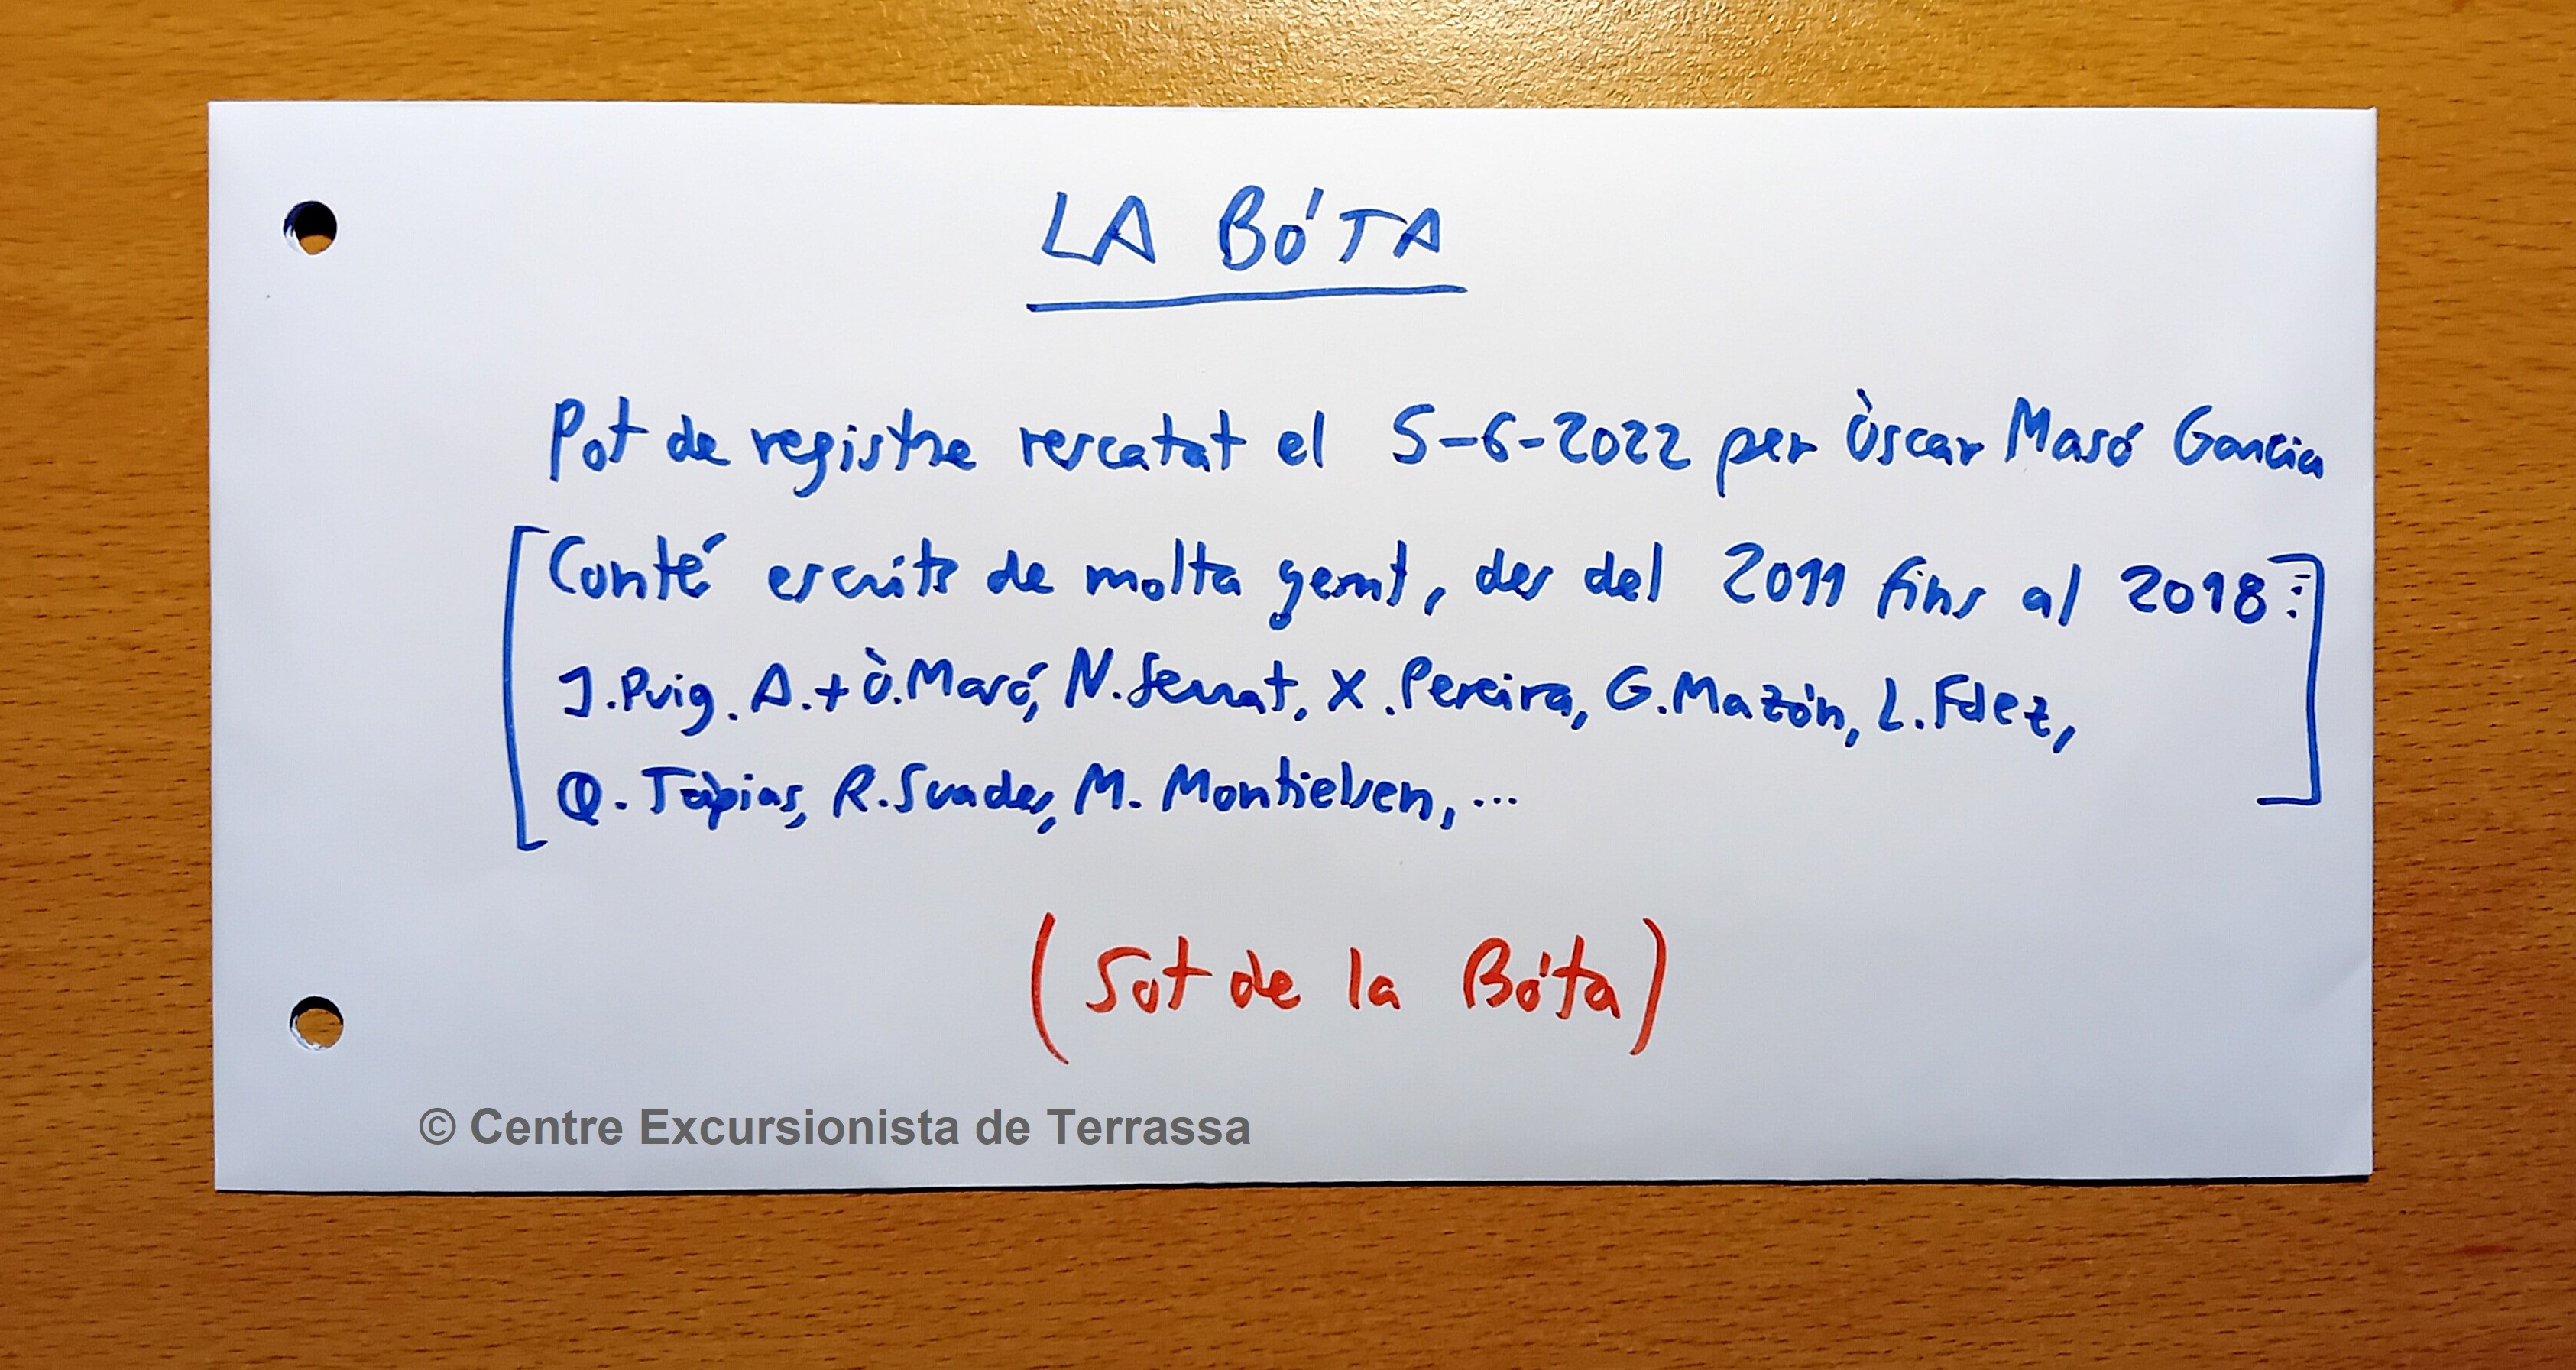 LA BÓTA
Pot de registre rescatat el 5-6-2022 per Òscar Masó Garcia
[Conté escrits de molta gent, des del 2011 fins al 2018:
J. Puig. A.+Ò. Masó, N. Serrat, X. Pereira, G. Mazón, L. Fdez,
Q. Tàpias, R. Suades, M. Montielsen, ...]
(Sot de la Bóta)
© Centre Excursionista de Terrassa